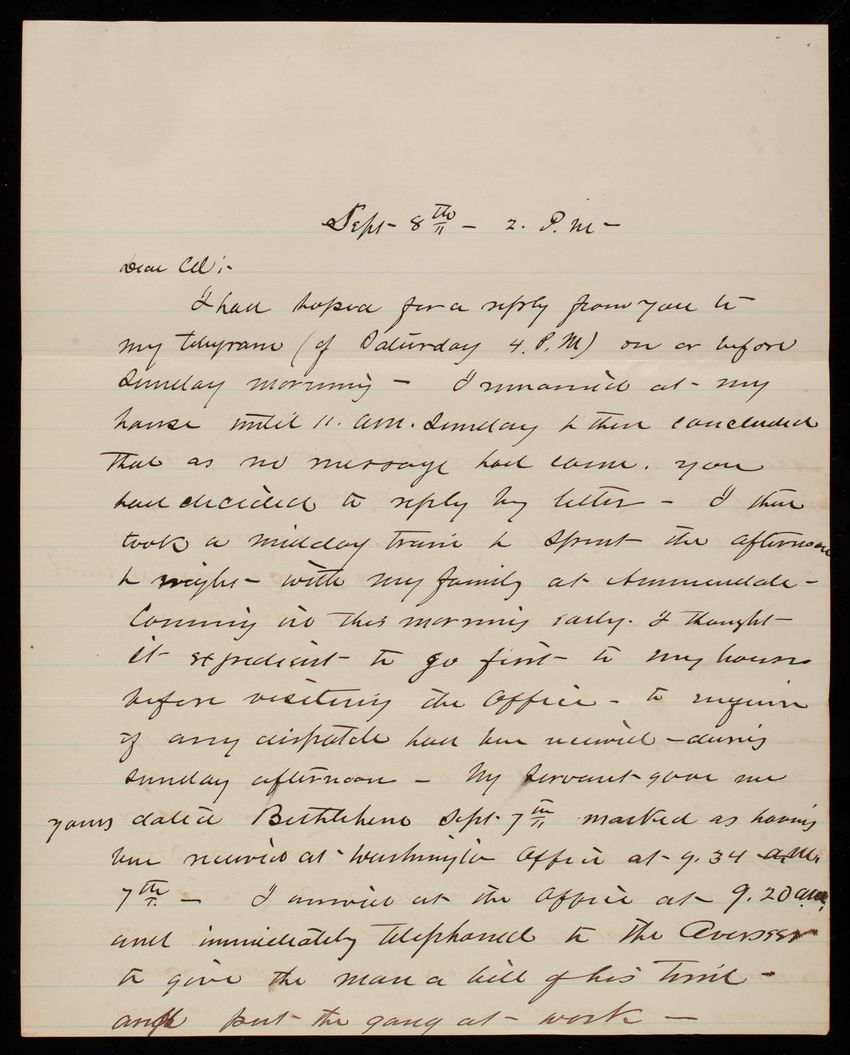 Sept 8th - 2. P.M -
Dear Col:-
I had hoped for a reply from you to
my telegram (of Saturday 4. P.M) on or before
Sunday morning - I remained at my
house until 11. a.m. Sunday & then concluded
that as no message had come. you
had decided to reply by letter - I then
took a midday train & spent the afternoon
& night - with my family at Ammendale -
Coming in this morning early. I thought
it expedient to go first to my house
before visiting the office - to inquire
if any dispatch had been received - during
Sunday afternoon - My servant gave me
yours dated Bethlehem Sept 7th marked as having
been received at Washington Office at 9.34 a.m.
7th - I arrived at the Office at 9.20 am,
and immediately telephoned to the Overseer
to give the man a bill of his time -
and put the gang at work -